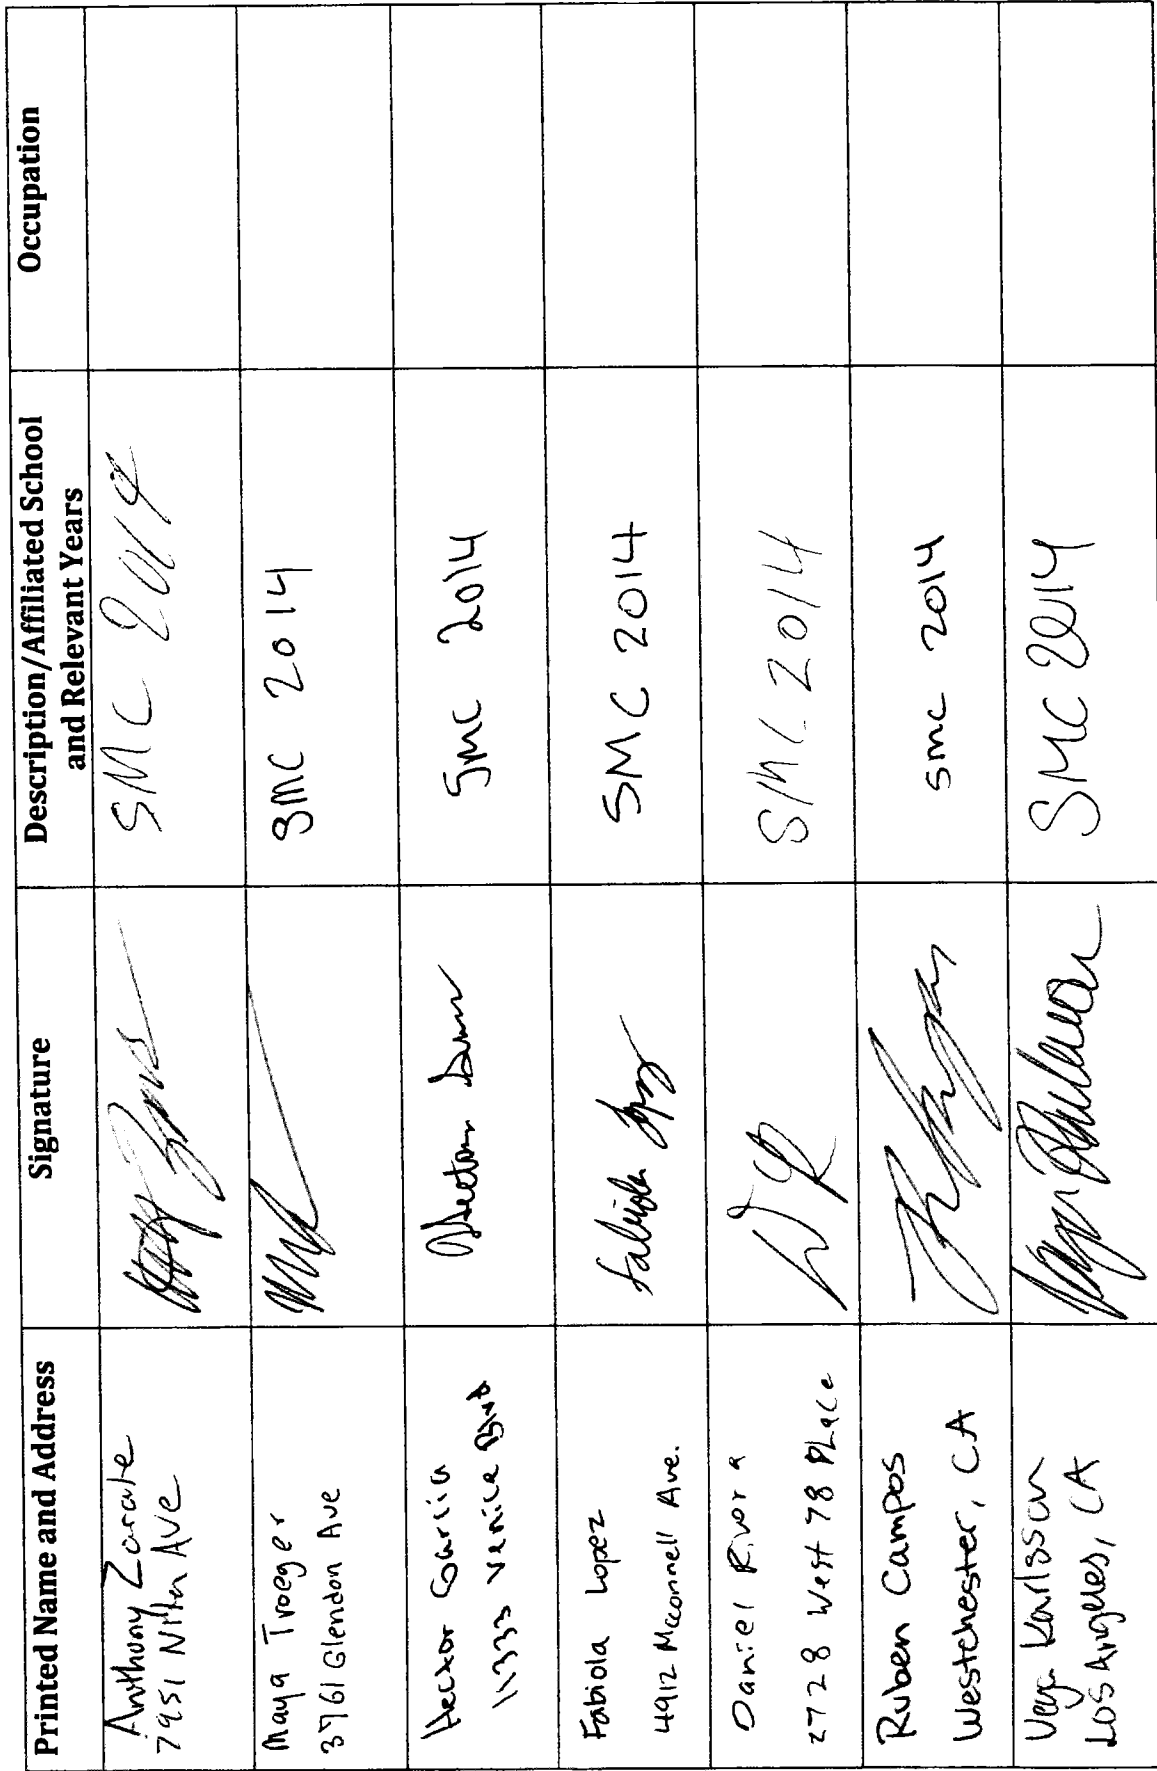 Printed Name and Address
Signature
Description/Affiliated School
and Relevant Years
Occupation
Anthony Zarate
7951 Ave
SMC 2014
Maya Troeger
3761 Glendon Ave
SMC 2014
Hector Garcia
11333 Venice Blvd
SMC 2014
Fabiola Lopez
4912 Mcconnell Ave.
Fabiola Lopez
SMC 2014
Daniel Rivora
2728 West 78 PLace
SMC 2014
Ruben Campos
Westchester, CA
smc 2014
Karlsson
Los Angeles, CA
SMC 2014